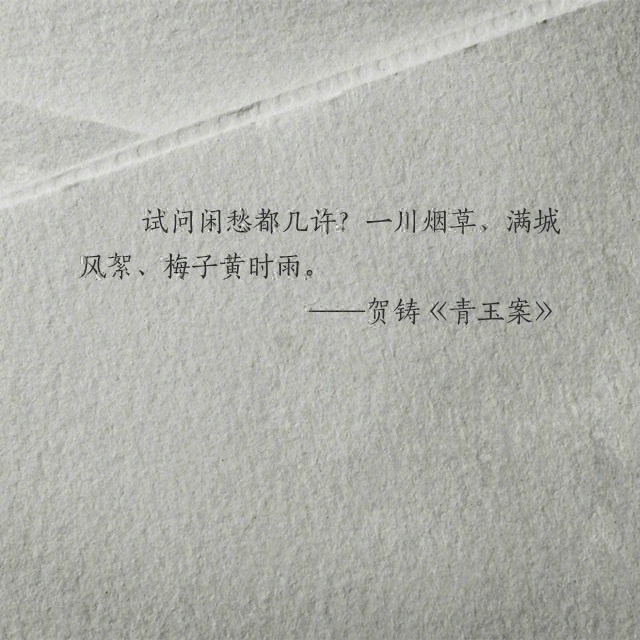 试问闲愁都几许？一川烟草、满城
风絮、梅子黄时雨。
——贺铸《青玉案》